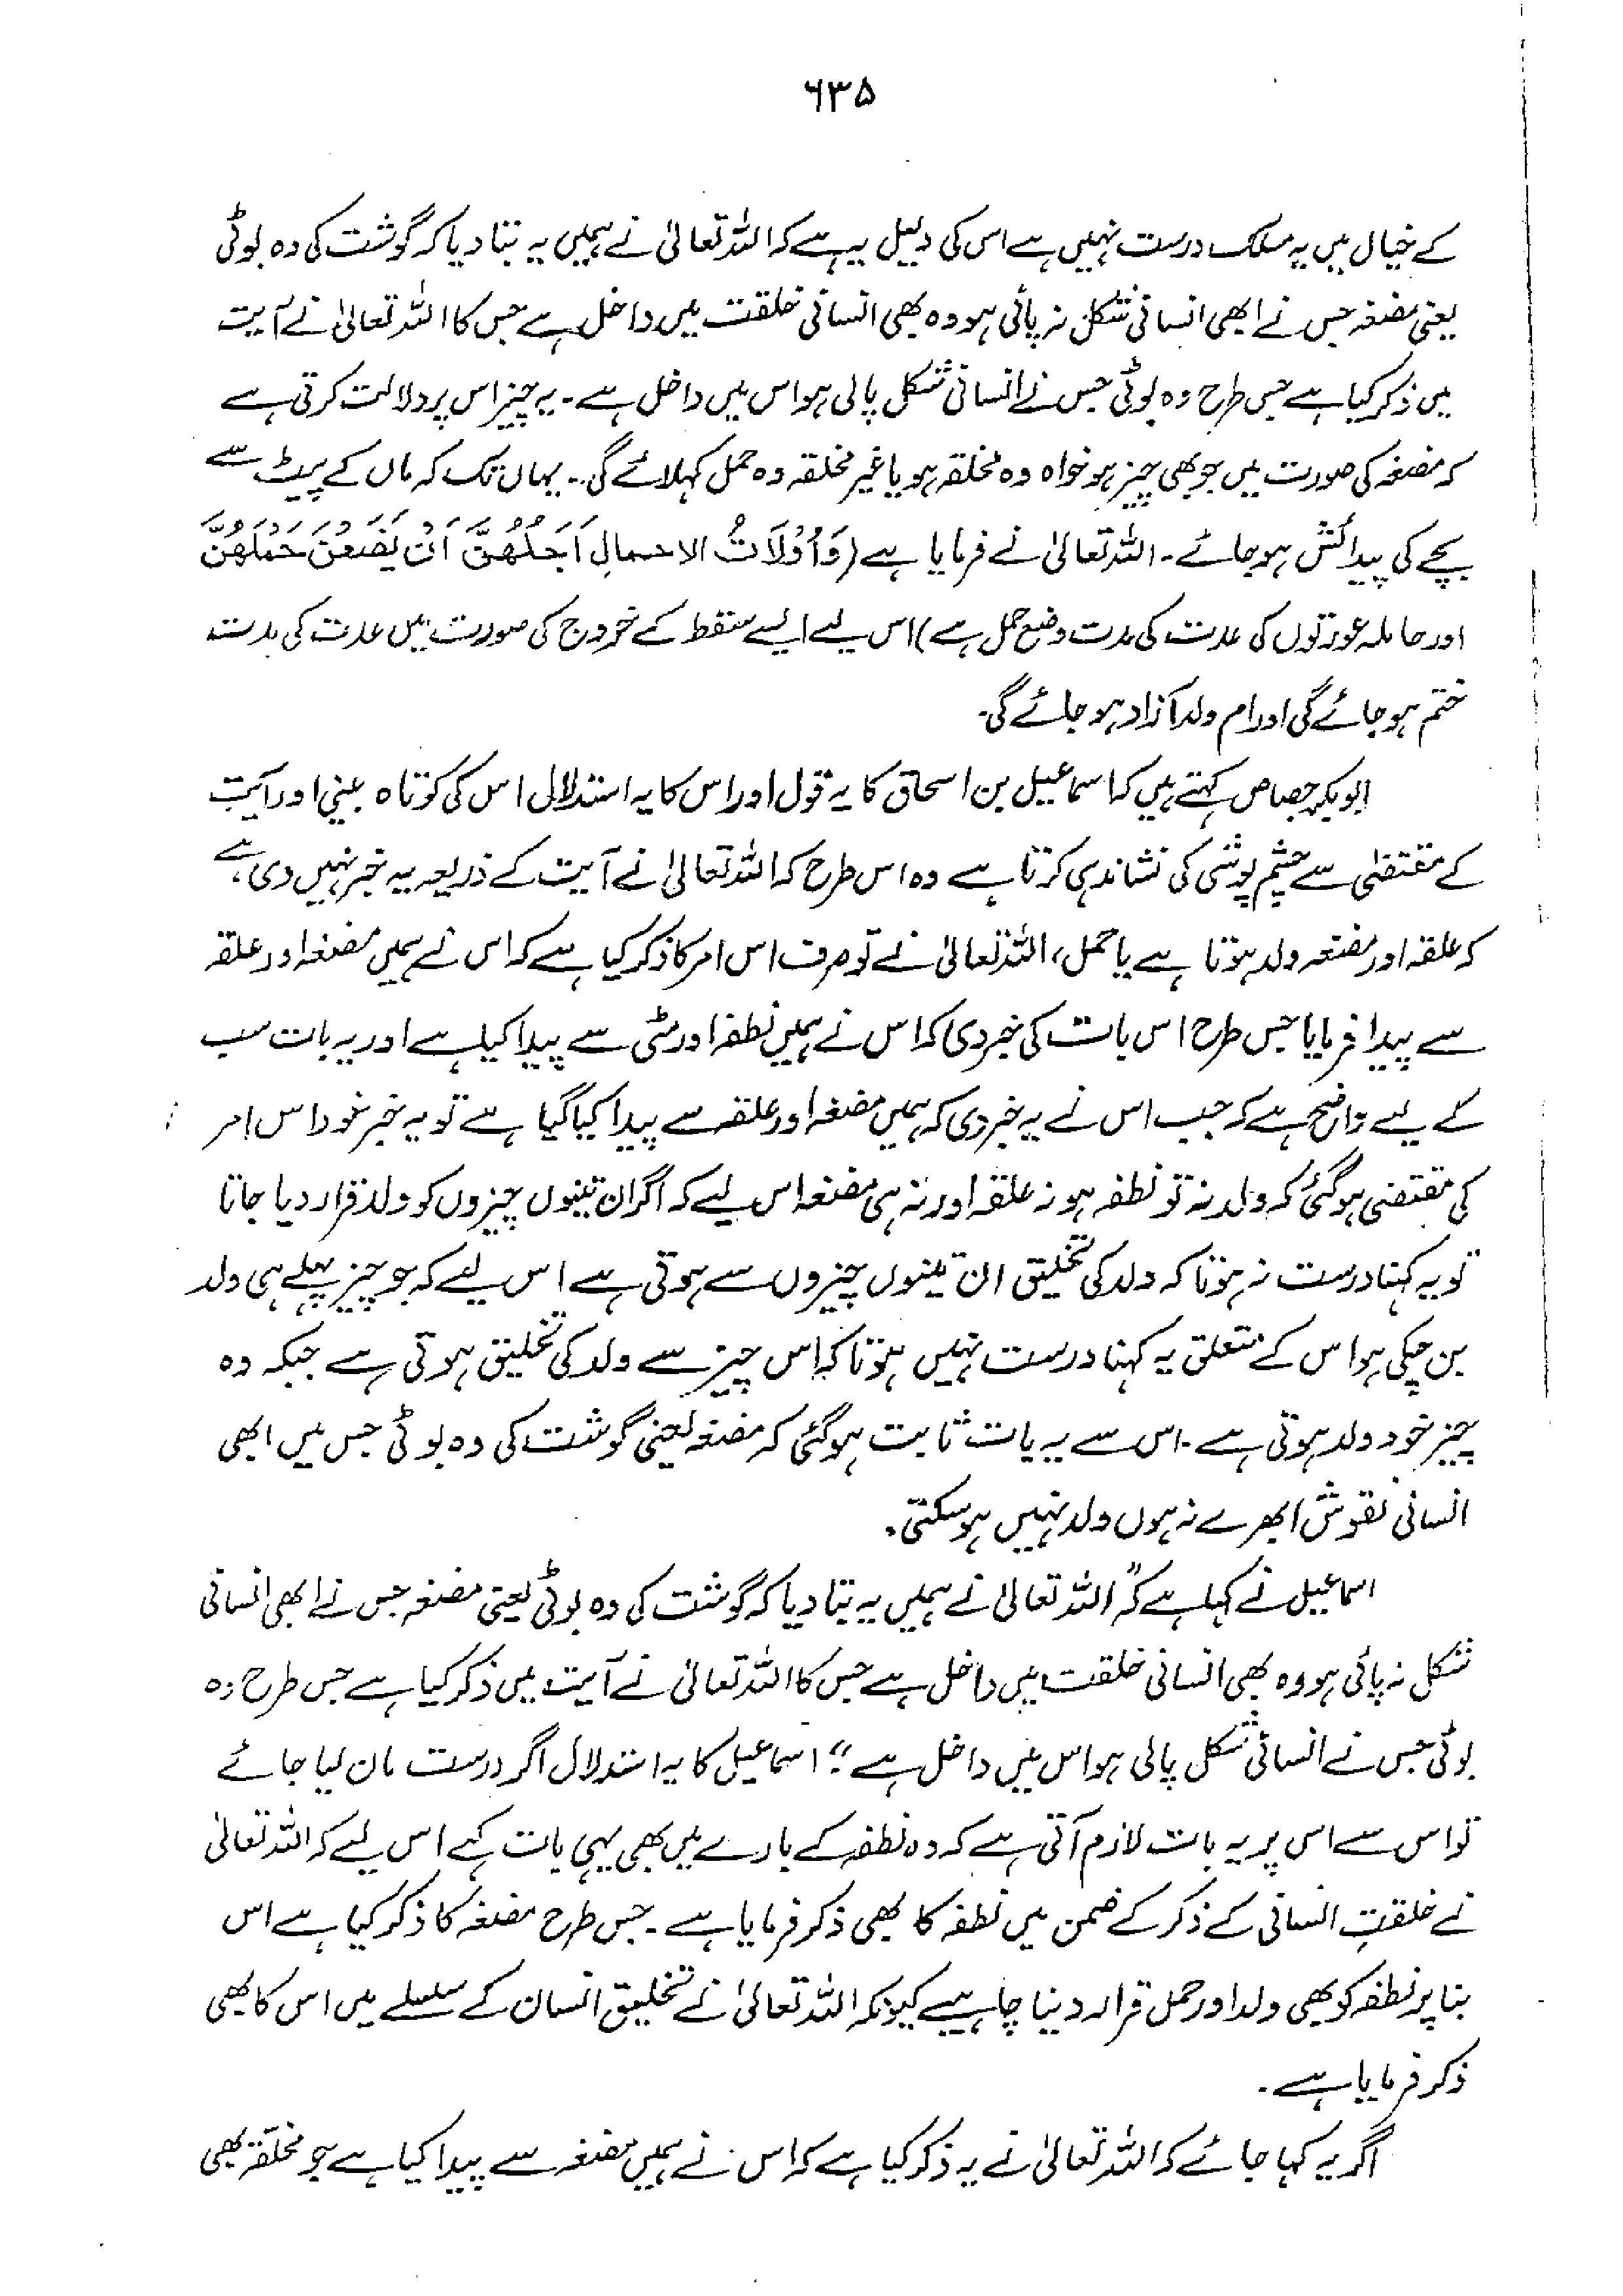 ۶۳۵
کے خیال میں یہ مسلک درست نہیں ہے اس کی دلیل یہ ہے کہ اللہ تعالیٰ نے ہمیں یہ بتا دیا کہ گوشت کی وہ بوٹی
یعنی مضغہ جس نے ابھی انسانی شکل نہ پائی ہو وہ بھی انسانی خلقت میں داخل ہے جس کا اللہ تعالیٰ نے آیت
میں ذکر کیا ہے جس طرح وہ بوٹی جس نے انسانی شکل پالی ہو اس میں داخل ہے۔ یہ چیز اس پر دلالت کرتی ہے
کہ مضغہ کی صورت میں جو بھی چیز ہو خواہ وہ مخلقہ ہو یا غیر مخلقہ وہ حمل کہلائے گی۔ یہاں تک کہ ماں کے پیٹ سے
بچے کی پیدائش ہو جائے۔ اللہ تعالیٰ نے فرمایا ہے (وَاُوْلَاتُ الاحمالِ اَجَلُهُنَّ اَنْ یَضَعْنَ حَمْلَهُنَّ
اور حاملہ عورتوں کی عدت کی مدت وضع حمل ہے) اس لیے ایسے سقط کے خروج کی صورت میں عدت کی مدت
ختم ہو جائے گی اور ام ولد آزاد ہو جائے گی۔
ابوبکر جصاص کہتے ہیں کہ اسماعیل بن اسحاق کا یہ قول اور اس کا یہ استدلال اس کی کوتاہ بینی اور آیت
کے مقتضیٰ سے چشم پوشی کی نشاندہی کرتا ہے وہ اس طرح کہ اللہ تعالیٰ نے آیت کے ذریعہ یہ خبر نہیں دی ہے
کہ علقہ اور مضغہ ولد ہوتا ہے یا حمل، اللہ تعالیٰ نے تو صرف اس امر کا ذکر کیا ہے کہ اس نے ہمیں مضغہ اور علقہ
سے پیدا فرمایا جس طرح اس بات کی خبر دی کہ اس نے ہمیں نطفہ اور مٹی سے پیدا کیا ہے اور یہ بات سب
کے لیے واضح ہے کہ جب اس نے یہ خبر دی کہ ہمیں مضغہ اور علقہ سے پیدا کیا گیا ہے تو یہ خبر خود اس امر
کی مقتضی ہو گئی کہ ولد نہ تو نطفہ ہو نہ علقہ اور نہ ہی مضغہ اس لیے کہ اگر ان تینوں چیزوں کو ولد قرار دیا جاتا
تو یہ کہنا درست نہ ہوتا کہ ولد کی تخلیق ان تینوں چیزوں سے ہوتی ہے اس لیے کہ جو چیز پہلے ہی ولد
بن چکی ہو اس کے متعلق یہ کہنا درست نہیں ہوتا کہ اس چیز سے ولد کی تخلیق ہوتی ہے جبکہ وہ
چیز خود ولد ہوتی ہے۔ اس سے یہ بات ثابت ہو گئی کہ مضغہ یعنی گوشت کی وہ بوٹی جس میں ابھی
انسانی نقوش ابھرے نہ ہوں ولد نہیں ہو سکتی۔
اسماعیل نے کہا ہے کہ "اللہ تعالیٰ نے ہمیں یہ بتا دیا کہ گوشت کی وہ بوٹی یعنی مضغہ جس نے ابھی انسانی
شکل نہ پائی ہو وہ بھی انسانی خلقت میں داخل ہے جس کا اللہ تعالیٰ نے آیت میں ذکر کیا ہے جس طرح وہ
بوٹی جس نے انسانی شکل پالی ہو اس میں داخل ہے" اسماعیل کا یہ استدلال اگر درست مان لیا جائے
تو اس سے اس پر یہ بات لازم آتی ہے کہ وہ نطفہ کے بارے میں بھی یہی بات کہے اس لیے کہ اللہ تعالیٰ
نے خلقتِ انسانی کے ذکر کے ضمن میں نطفہ کا بھی ذکر فرمایا ہے۔ جس طرح مضغہ کا ذکر کیا ہے اس
بنا پر نطفہ کو بھی ولد اور حمل قرار دینا چاہیے کیونکہ اللہ تعالیٰ نے تخلیق انسان کے سلسلے میں اس کا بھی
ذکر فرمایا ہے۔
اگر یہ کہا جائے کہ اللہ تعالیٰ نے یہ ذکر کیا ہے کہ اس نے ہمیں مضغہ سے پیدا کیا ہے جو مخلّقہ بھی